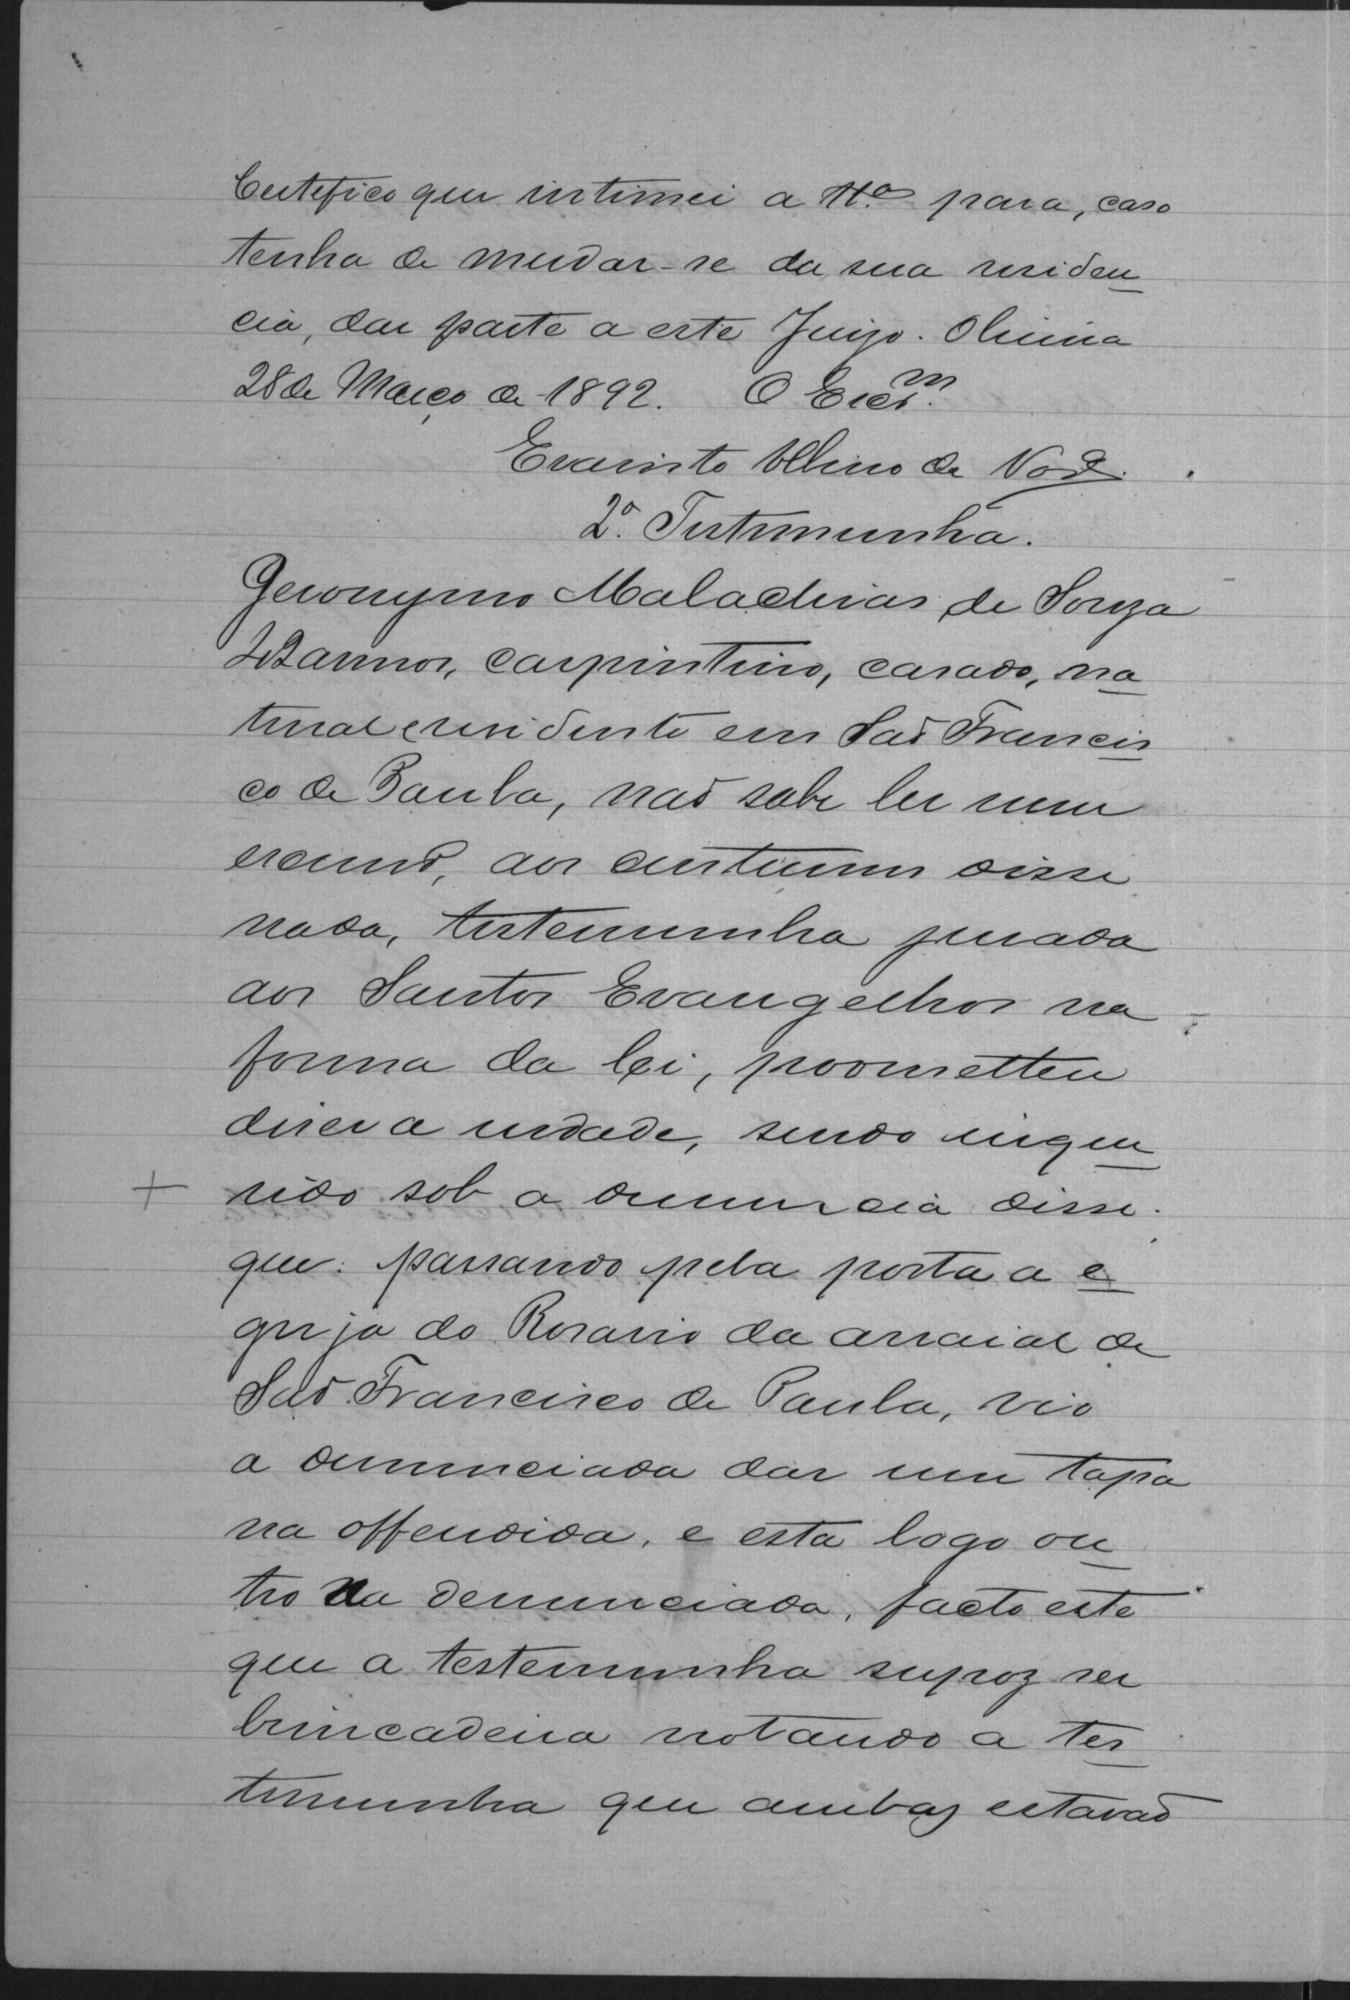 Certefico que intimei a tt.ª para, caso
tenha de mudar-se da sua residen
cia, dar parte a este Juizo. Oliveira
28 de Março de 1892. O Escr.m
Evaristo de
2ª Testimunha.
Geronymo Malachias de Souza
carpinteiro, casado, na
tural e residente em Saõ Francis
co de Paula, naõ sabe ler nem
escrever, aos custumes disse
nada, testemunha jurada
aos Santos Evangelhos na
forma da lei, prometteu
diser a verdade, sendo inque
rido sob a denuncia disse
que: passando pela porta a e
greja do Rosario da arraial de
Saõ Francisco de Paula, vio
a denunciada dar um tapa
na offendida, e esta logo ou
tro na denunciada, facto este
que a testemunha supoz ser
brincadeira notando a tes
timunha que ambas estavaõ